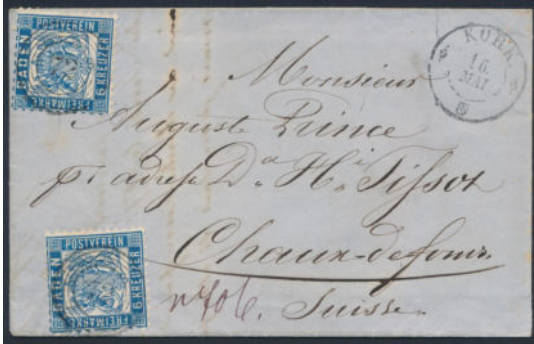 POSTVEREIN
BADEN
6 KREUZER
FREIMARKE
KÜRN
16.
MAI
Monsieur
Auguste Prince
pr adresse Da Hi Tissot
Chaux-de-fonds.
Suisse.
POSTVEREIN
BADEN
6 KREUZER
FREIMARKE